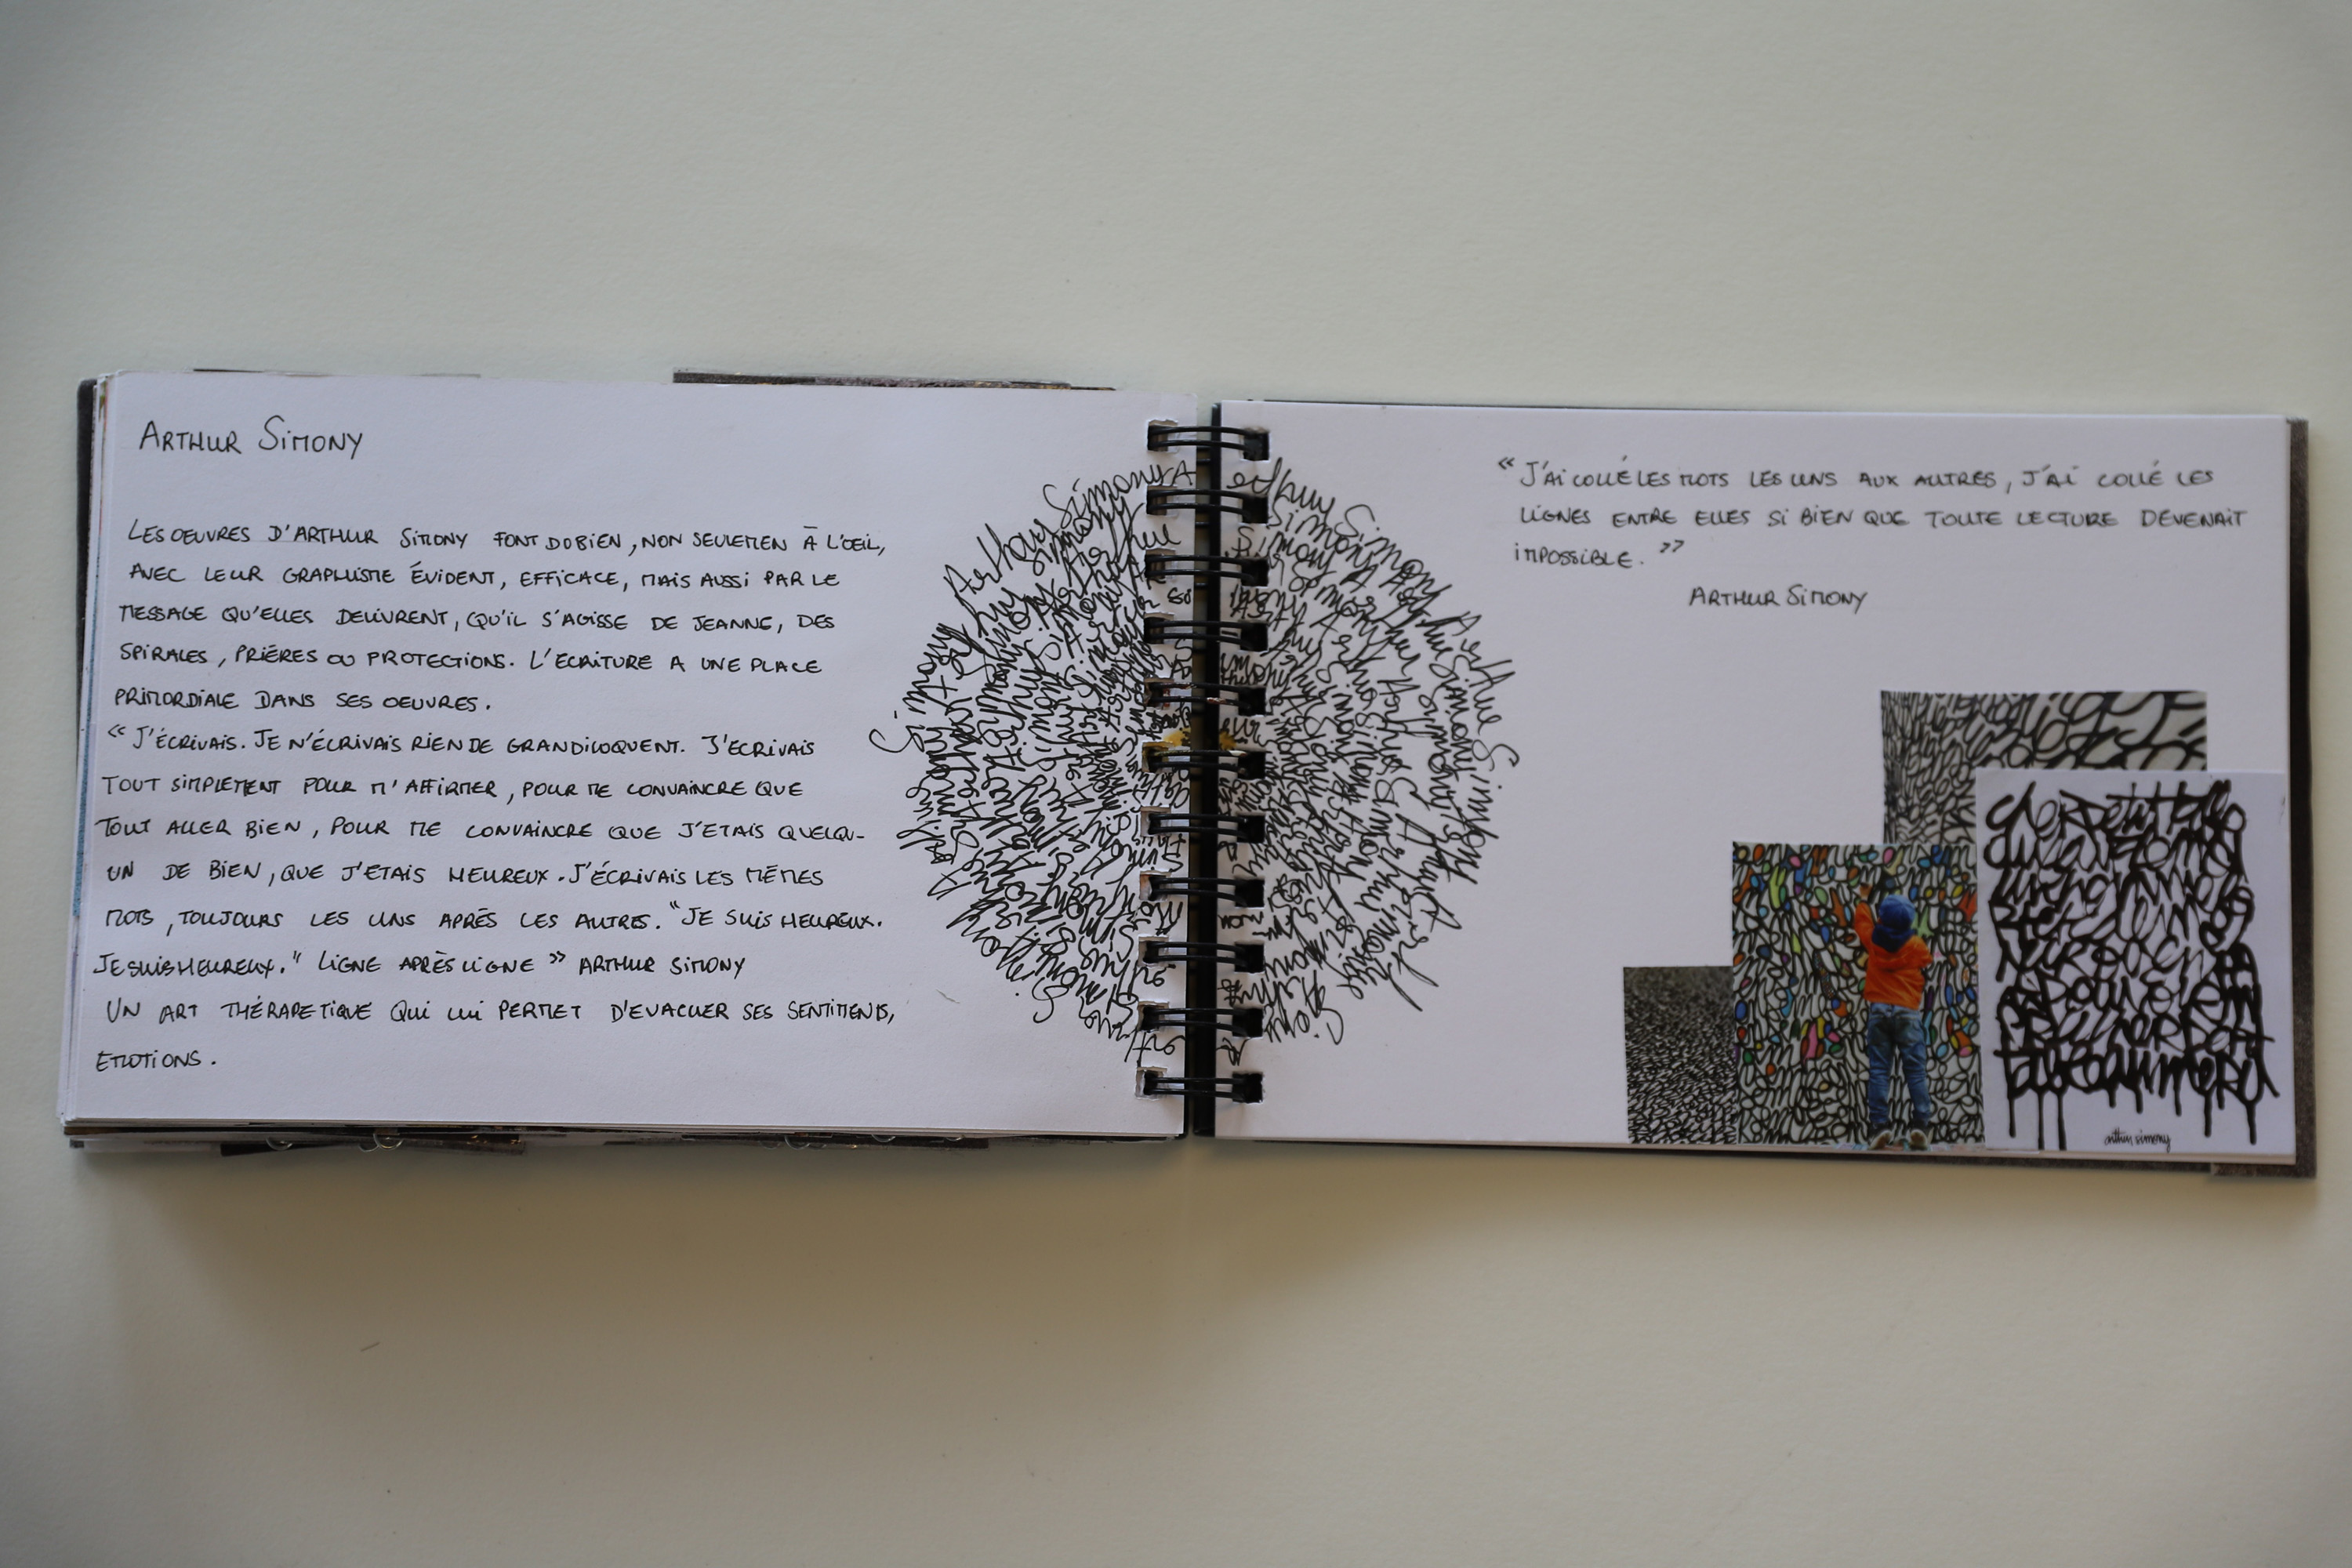 ARTHUR SIMONY
LES OEUVRES D'ARTHUR SIMONY FONT DO BIEN, NON SEULEMEN À L'OEIL,
AVEC LEUR GRAPHISME ÉVIDENT, EFFICACE, MAIS AUSSI PAR LE
MESSAGE QU'ELLES DELIVRENT, QU'IL S'AGISSE DE JEANNE, DES
SPIRALES, PRIÉRES OU PROTECTIONS. L'ECRITURE A UNE PLACE
PRIMORDIALE DANS SES OEUVRES.
« J'ÉCRIVAIS. JE N'ÉCRIVAIS RIEN DE GRANDILOQUENT. J'ECRIVAIS
TOUT SIMPLEMENT POUR M'AFFIRMER, POUR ME CONVAINCRE QUE
TOUT ALLER BIEN, POUR ME CONVAINCRE QUE J'ETAIS QUELQU-
UN DE BIEN, QUE J'ETAIS HEUREUX. J'ÉCRIVAIS LES MÊMES
MOTS, TOUJOURS LES UNS APRÈS LES AUTRES. "JE SUIS HEUREUX.
JE SUIS HEUREUX." LIGNE APRÈS LIGNE » ARTHUR SIMONY
UN ART THÉRAPETIQUE QUI LUI PERMET D'EVACUER SES SENTIMENTS,
EMOTIONS.
« J'AI COLLÉ LES MOTS LES UNS AUX AUTRES, J'AI COLLÉ LES
LIGNES ENTRE ELLES SI BIEN QUE TOUTE LECTURE DEVENAIT
IMPOSSIBLE. »
ARTHUR SIMONY
arthur simony